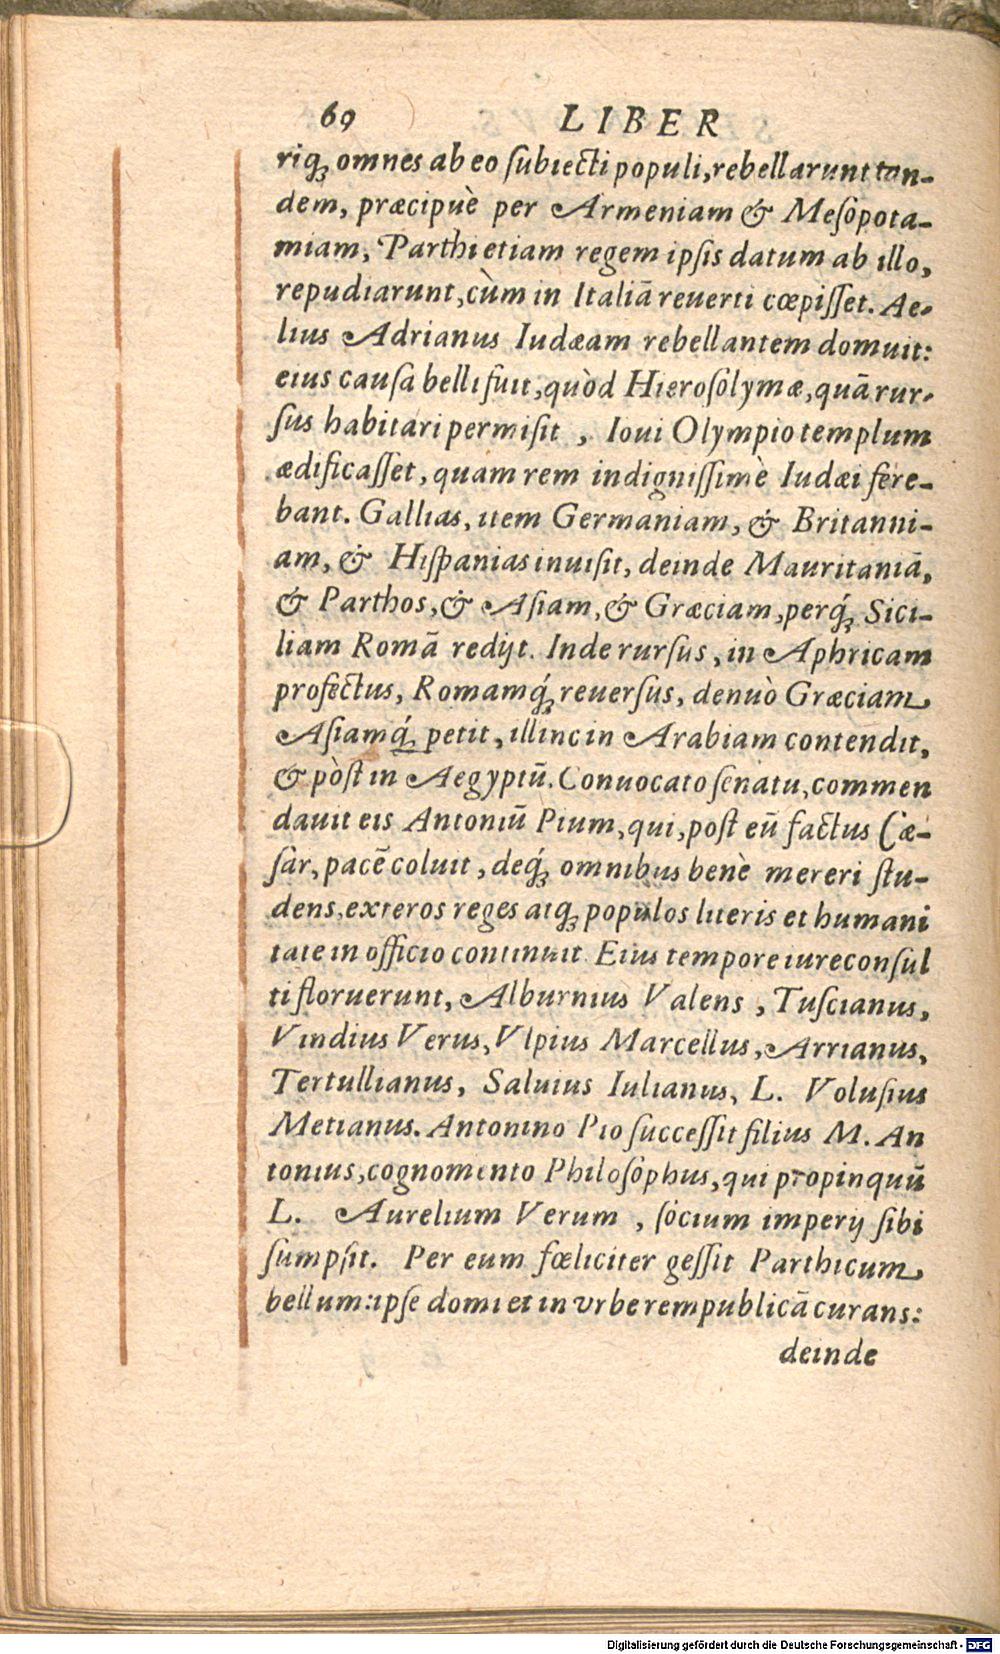 69 LIBER
riq́; omnes ab eo ſubiecti populi, rebellarunt tan-
dem, præcipuè per Armeniam & Meſopota-
miam, Parthi etiam regem ipſis datum ab illo,
repudiarunt, cùm in Italiā reuerti cœpiſſet. Ae-
lius Adrianus Iudæam rebellantem domuit:
eius cauſa belli fuit, quòd Hieroſolymæ, quā rur-
ſus habitari permiſit, Ioui Olympio templum
ædificaſſet, quam rem indigniſſimè Iudæi fere-
bant. Gallias, item Germaniam, & Britanni-
am, & Hiſpanias inuiſit, deinde Mauritaniā,
& Parthos, & Aſiam, & Græciam, perq́; Sici-
liam Romā redijt. Inde rurſus, in Aphricam
profectus, Romamq́; reuerſus, denuò Græciam
Aſiamq́; petit, illinc in Arabiam contendit,
& pòſt in Aegyptū. Conuocato ſenatu, commen
dauit eis Antoniū Pium, qui, poſt eū factus Cæ-
ſar, pacē coluit, deq́; omnibus benè mereri ſtu-
dens, exteros reges atq; populos literis et humani
tate in officio continuit. Eius tempore iureconſul
ti floruerunt, Alburnius Valens, Tuſcianus,
Vindius Verus, Vlpius Marcellus, Arrianus,
Tertullianus, Saluius Iulianus, L. Voluſius
Metianus. Antonino Pio ſucceſſit filius M. An
tonius, cognomento Philoſophus, qui propinquū
L. Aurelium Verum, ſocium imperij ſibi
ſumpſit. Per eum fœliciter geſſit Parthicum
bellum: ipſe domi et in vrbe rempublicā curans:
deinde
Digitalisierung gefördert durch die Deutsche Forschungsgemeinschaft - DFG